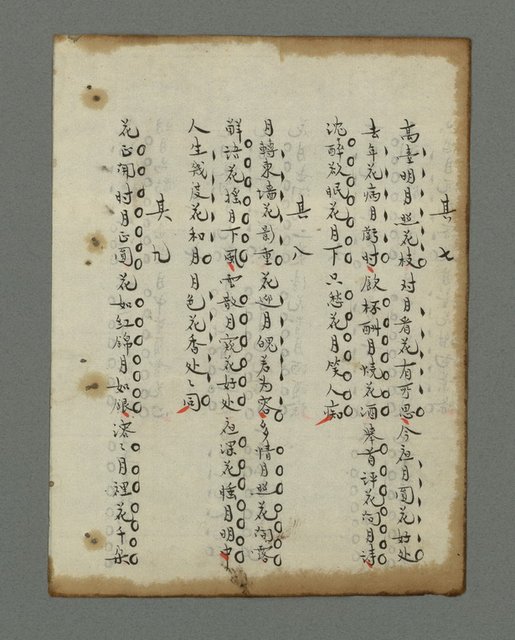 其七
高臺明月照花枝对月看花有所思今夜月圓花好处
去年花病月虧时飲杯酬月澆花酒舉首評花问月詩
沈醉欲眠花月下只愁花月笑人痴
其八
月轉東墻花影重花迎月魄若为容多情月照花间露
解語花搖月下風雲散月窺花好处夜深花睡月明中
人生幾度花和月月色花香处〻同
其九
花正開时月正圓花如紅錦月如銀溶〻月裡花千朵